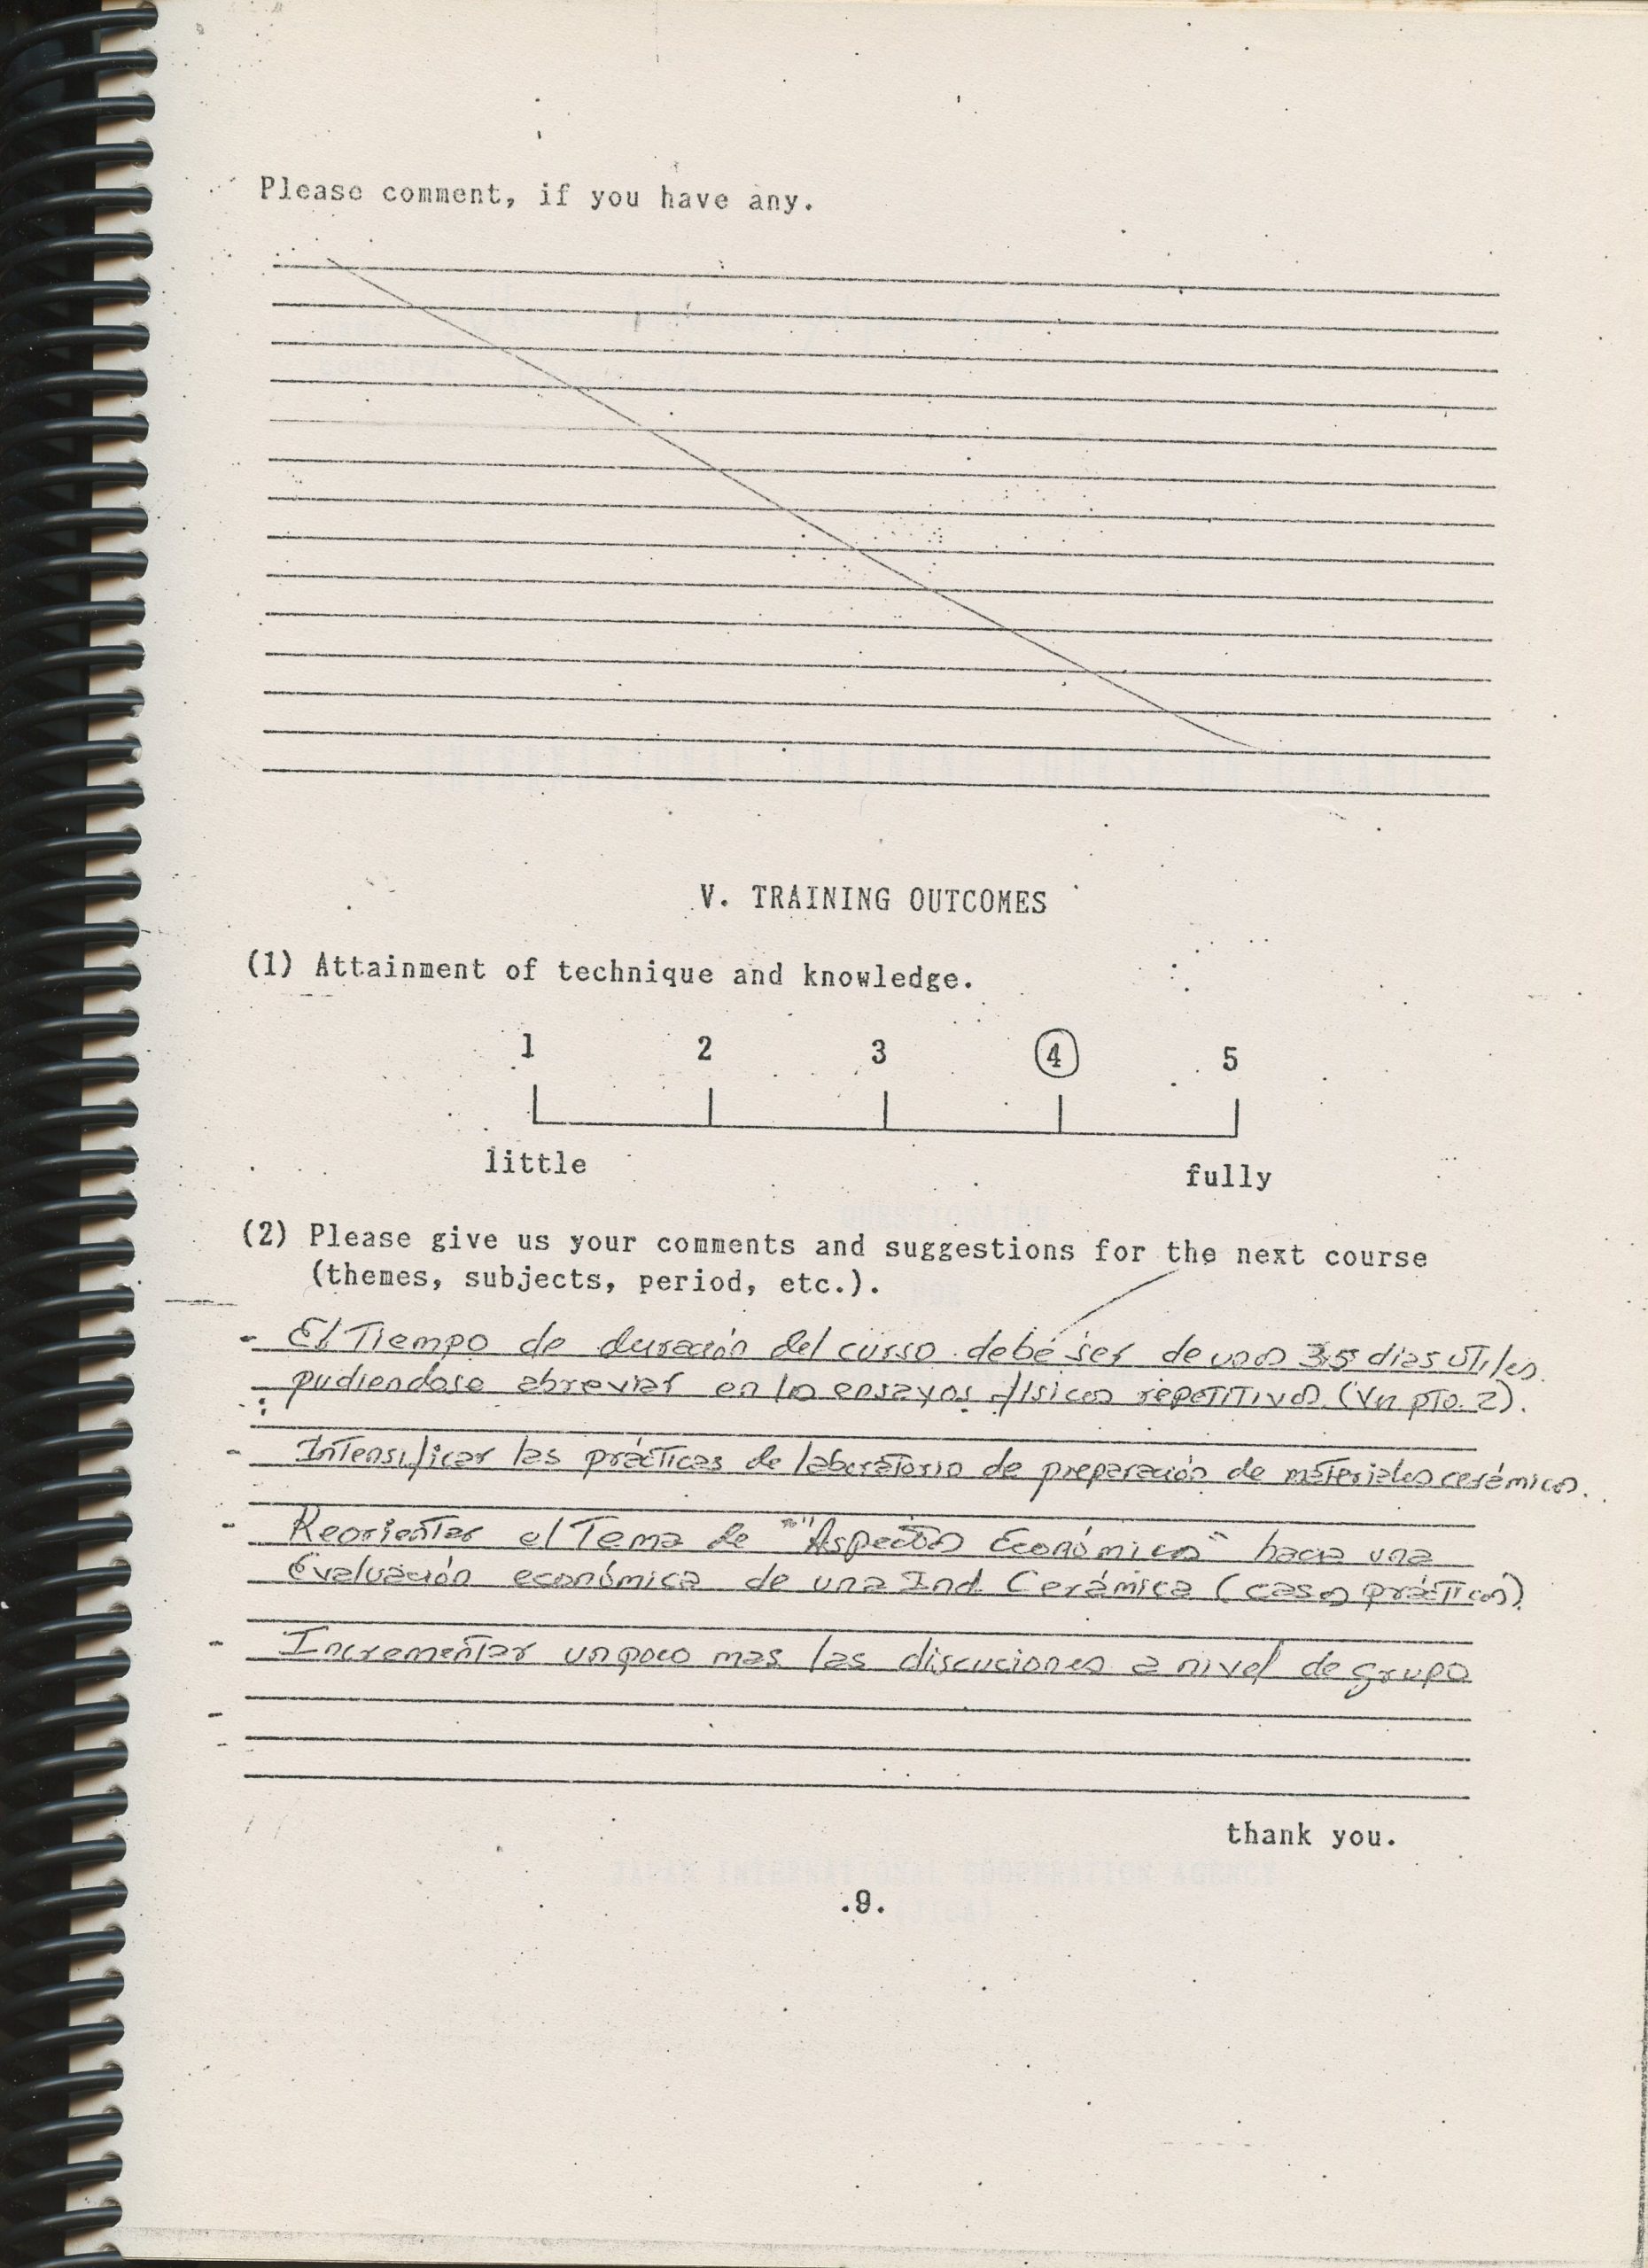 Please comment, if you have any.
V. TRAINING OUTCOMES
(1) Attainment of technique and knowledge.
1 2 3 4 5
little fully
(2) Please give us your comments and suggestions for the next course
(themes, subjects, period, etc.).
- El Tiempo de duración del curso debe ser de unos 35 dias útiles
pudiendose abreviar en los ensayos físicos repetitivos (Ver pto. 2).
- Intensificar las prácticas de laboratorio de preparación de materiales cerámicos.
- Reorientar el Tema de "Aspectos Económicos" hacia una
Evaluación económica de una Ind Cerámica (casos prácticos).
- Incrementar un poco mas las discuciones a nivel de grupo
thank you.
.9.